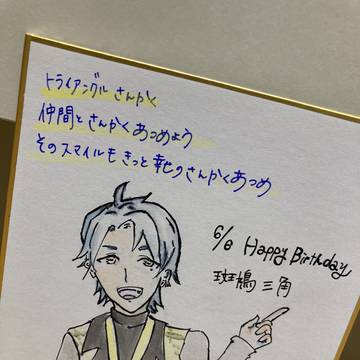 トライアングル さんかく
仲間とさんかくあつめよう
そのスマイルも きっと 幸せのさんかくあつめ
6/8 Happy Birthday
斑鳩 三角